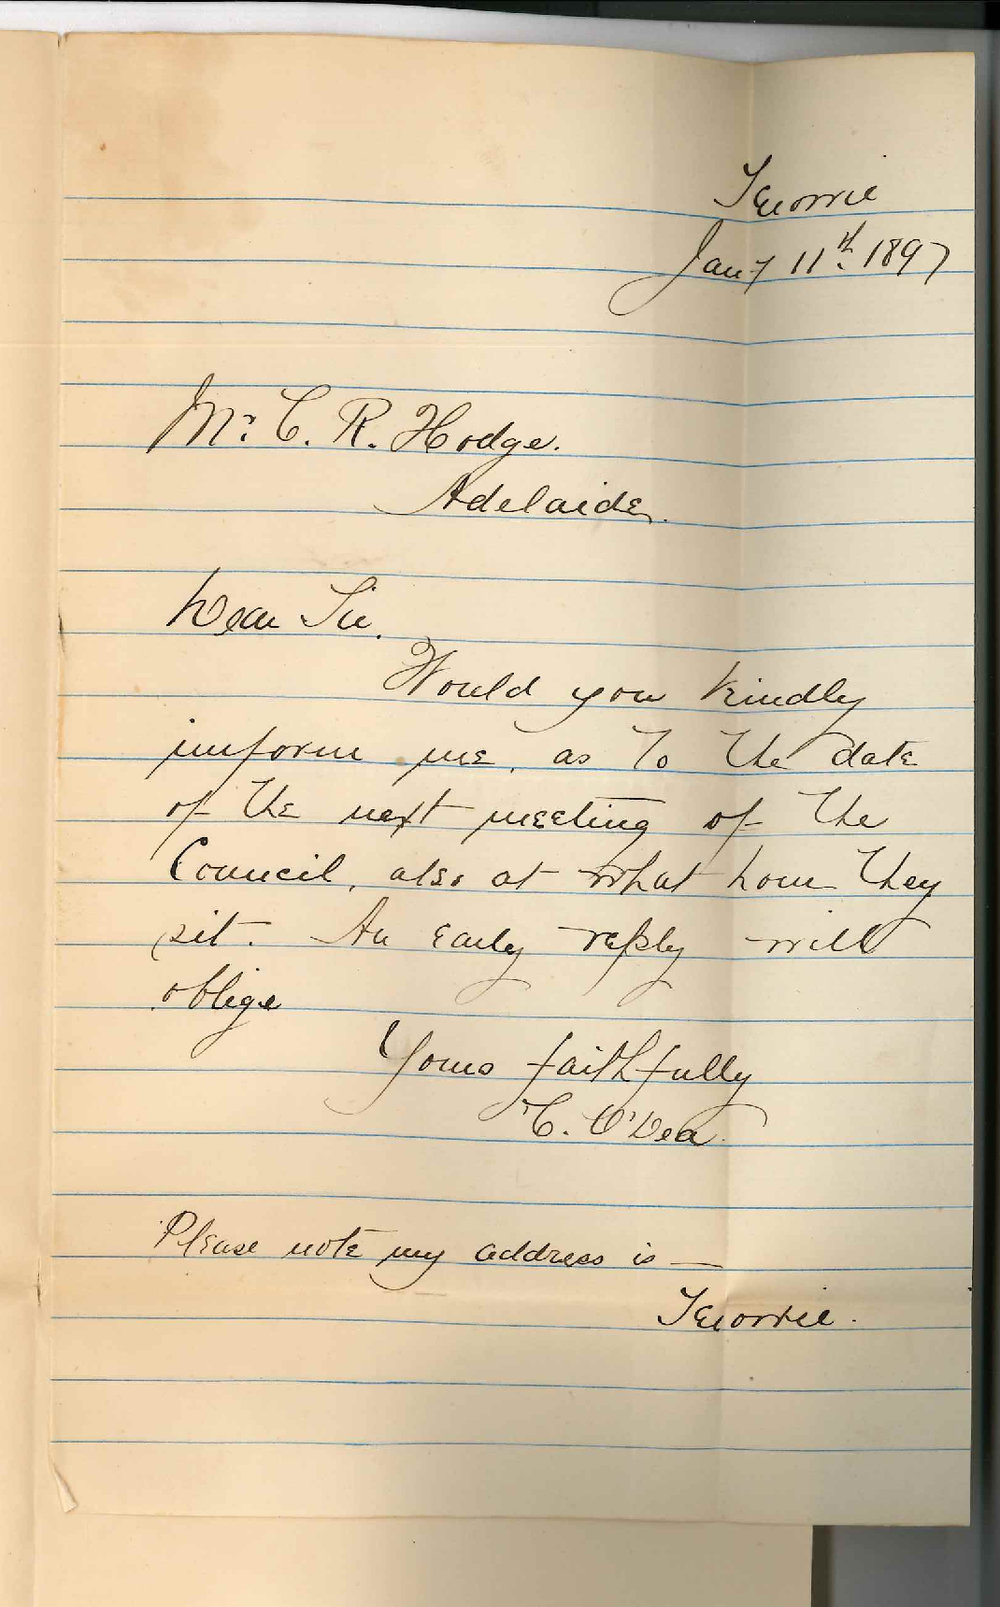 Terowie
Jany 11th. 1897
Mr. C. R. Hodge.
Adelaide.
Dear Sir.
Would you kindly
inform me, as to the date
of the next meeting of the
Council, also at what hour they
sit. An early reply will
oblige
Yours faithfully
C. O'Dea.
Please note my address is —
Terowie.